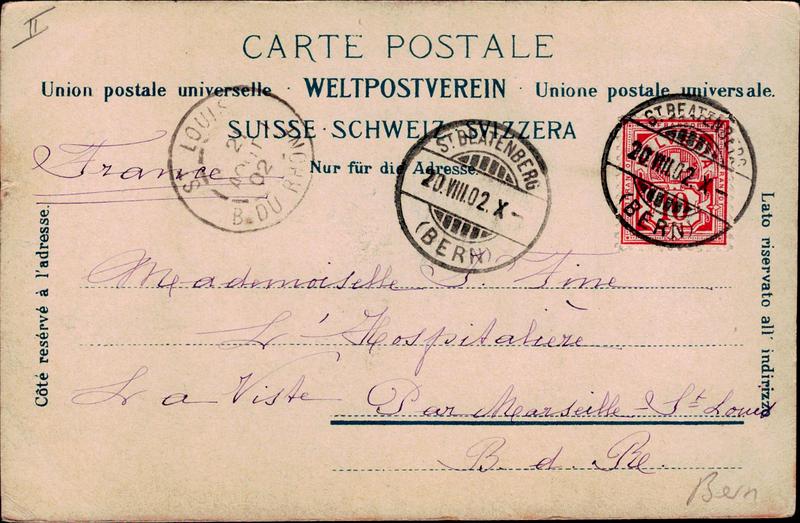 II
CARTE POSTALE
Union postale universelle · WELTPOSTVEREIN · Unione postale universale.
SUISSE · SCHWEIZ · SVIZZERA
Nur für die Adresse.
France
ST. BEATENBERG
20.VIII.02.X-
(BERN)
ST. BEATENBERG
20.VIII.02.X
(BERN)
10
Côté resérvé à l'adresse.
Lato riservato all' indirizzo
Mademoiselle J. Fine
L'Hospitalière
La Viste Par Marseille-St Louis
B. d. Re.
Bern